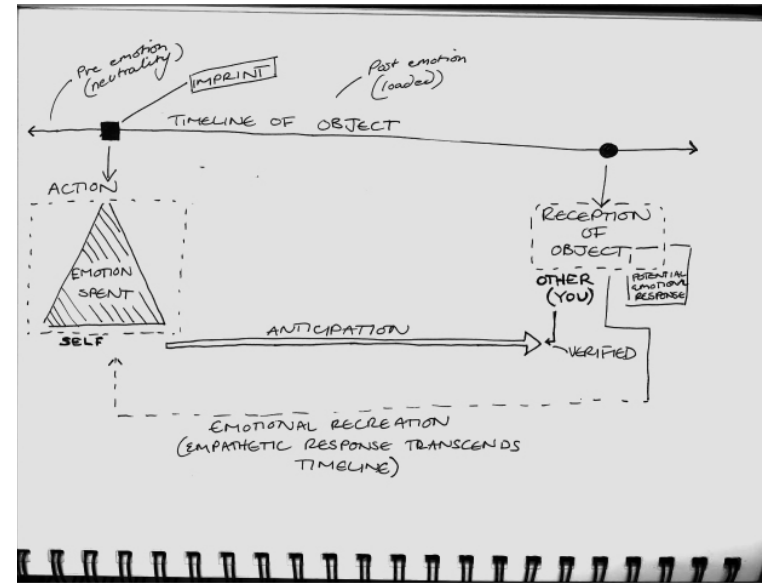 Pre emotion
(neutrality)
IMPRINT
Post emotion
(loaded)
TIMELINE OF OBJECT
ACTION
EMOTION
SPENT
SELF
RECEPTION
OF
OBJECT
OTHER
(YOU)
POTENTIAL
EMOTIONAL
RESPONSE
ANTICIPATION
VERIFIED
EMOTIONAL RECREATION
(EMPATHETIC RESPONSE TRANSCENDS
TIMELINE)